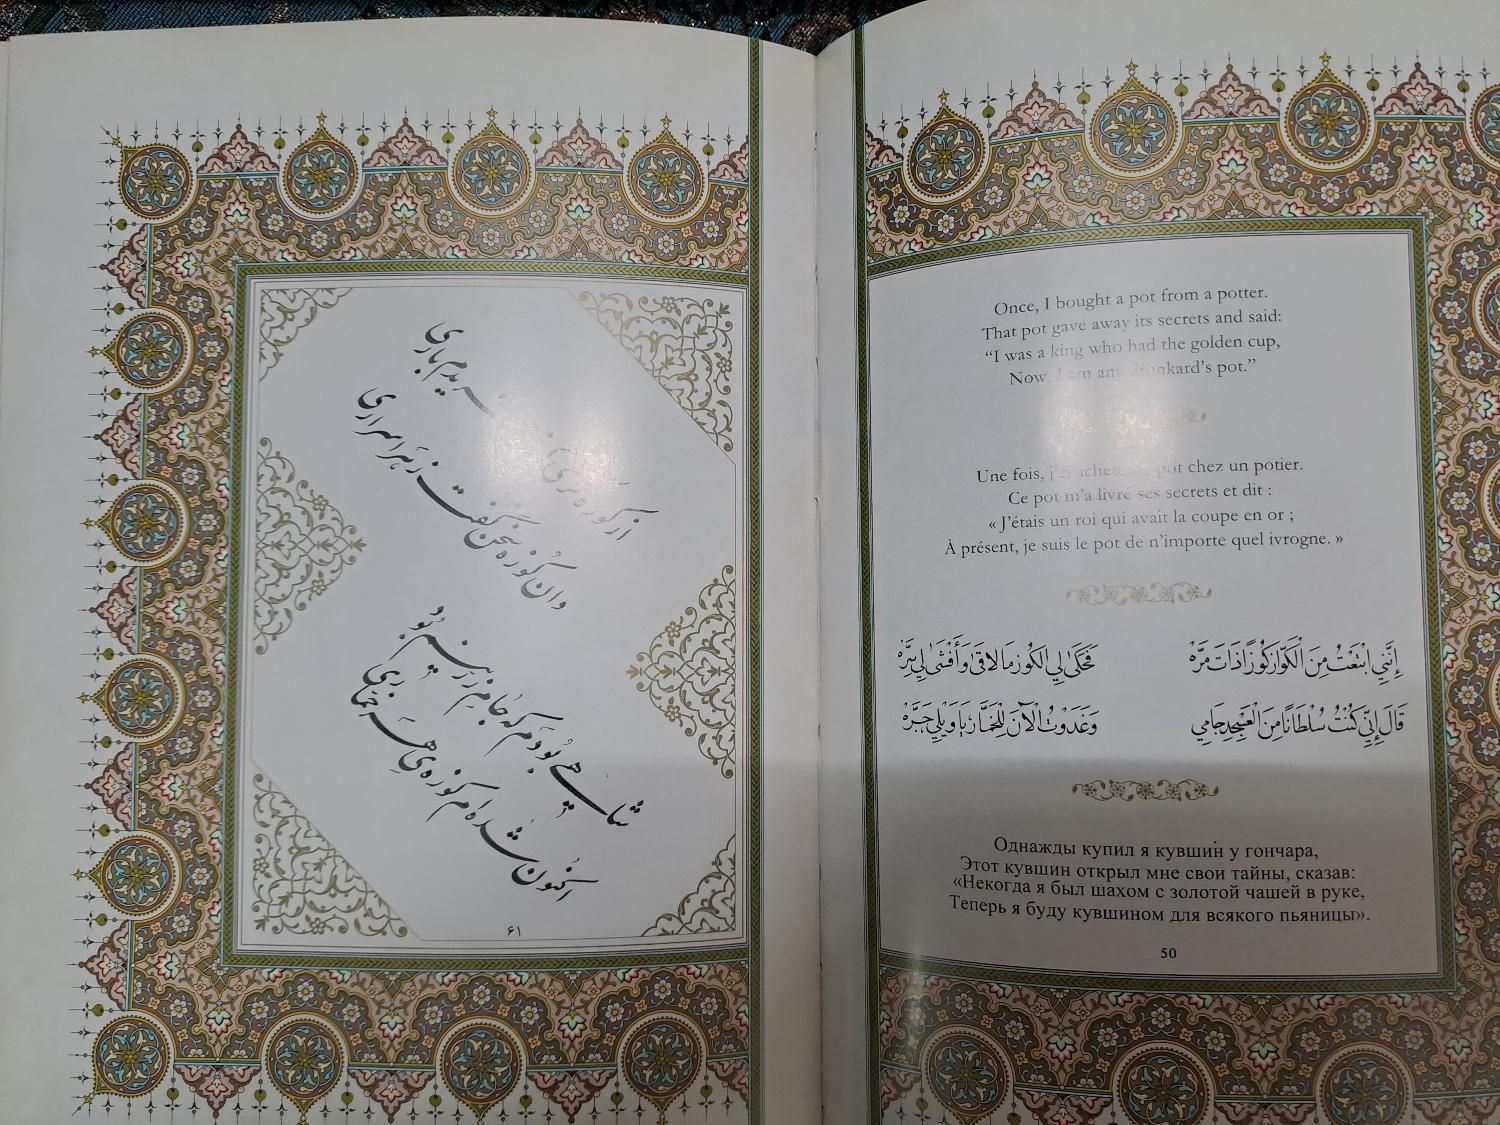 از کوزه‌گری کوزه خریدم باری
وان کوزه سخن گفت ز هر اسراری
شاهی بودم که جام زرینم بود
اکنون شده‌ام کوزه‌ی هر خمّاری
۶۱
Once, I bought a pot from a potter.
That pot gave away its secrets and said:
“I was a king who had the golden cup,
Now, I am any drunkard’s pot.”
Une fois, j’ai acheté un pot chez un potier.
Ce pot m’a livré ses secrets et dit :
« J’étais un roi qui avait la coupe en or ;
À présent, je suis le pot de n’importe quel ivrogne. »
إِنَّنِي ابْتَعْتُ مِنَ الْكَوَّازِ كُوزًا ذَاتَ مَرَّه فَحَكَىٰ لِي الكُوزُ مَا لاقَىٰ وَأَفْشَىٰ لِي سِرَّه
قَالَ إِنِّي كُنْتُ سُلْطَانًا مِنَ الْعَسْجِدِ جَامِي وَغَدَوْتُ الْآنَ لِلْخَمَّارِ يَا وَيْلِي جَرَّه
Однажды купил я кувшин у гончара,
Этот кувшин открыл мне свои тайны, сказав:
«Некогда я был шахом с золотой чашей в руке,
Теперь я буду кувшином для всякого пьяницы».
50